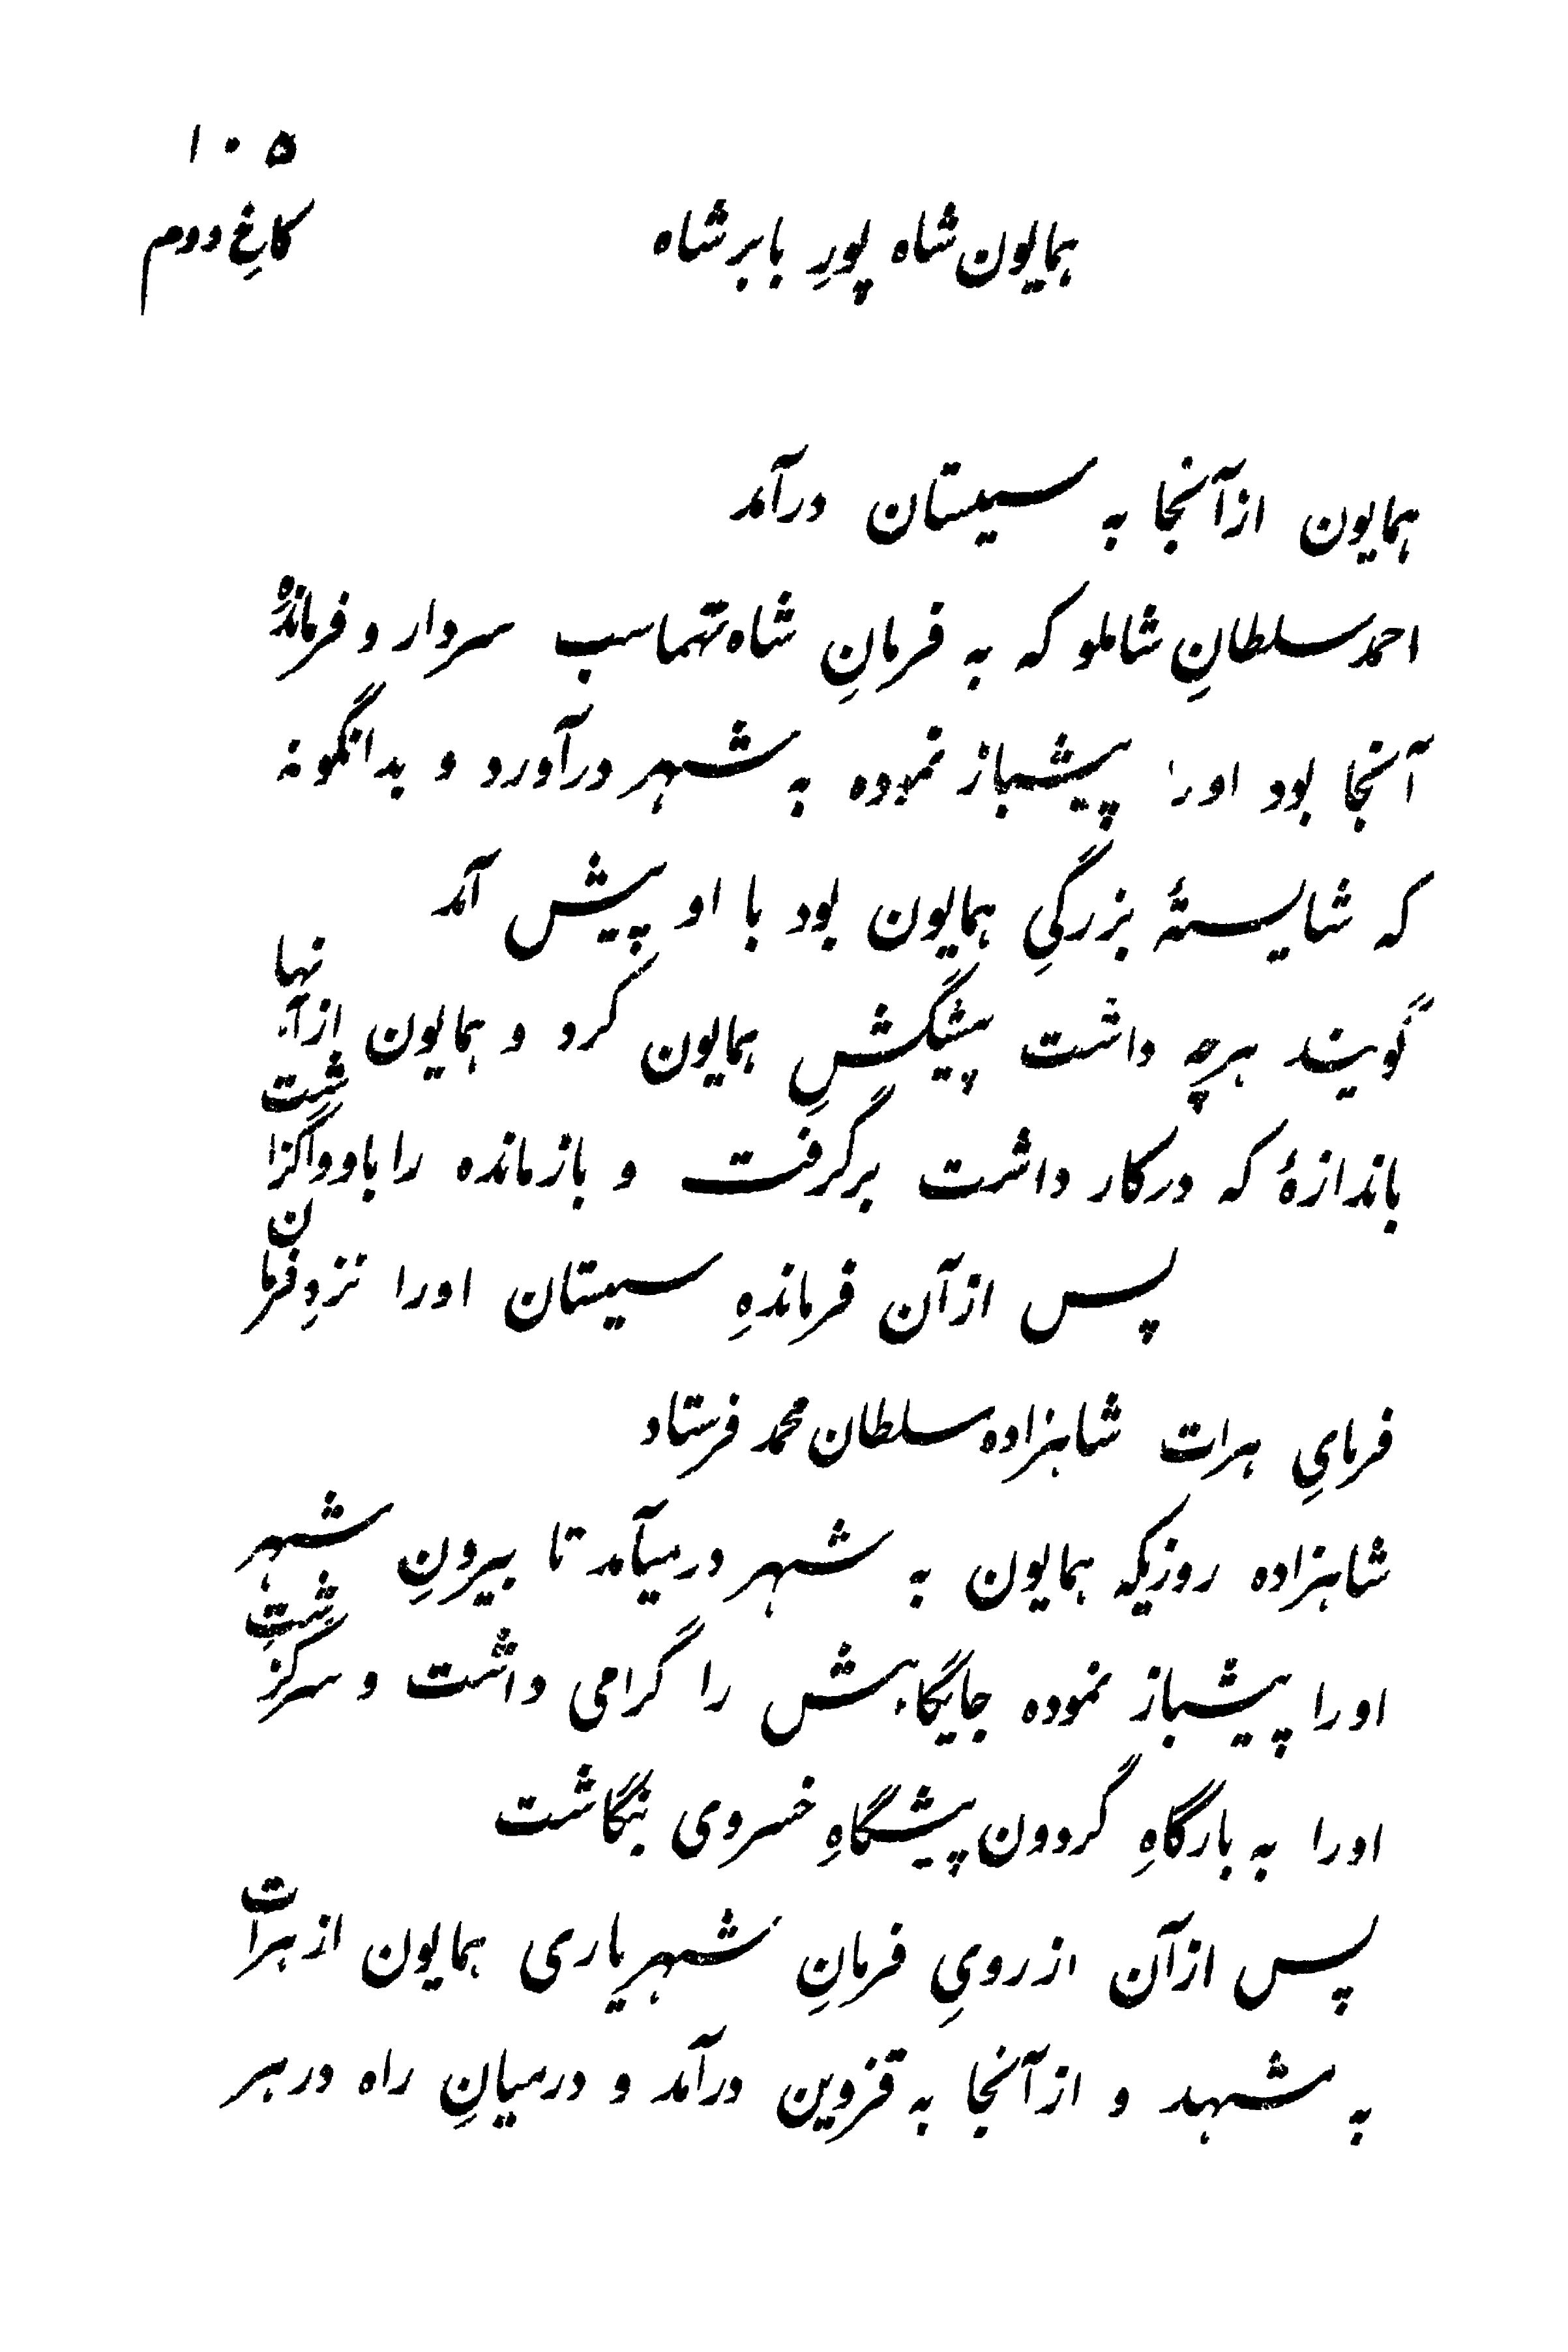 ۱۰۵
کاغِ دوم
همایون شاه پورِ بابر شاه
همایون از آنجا به سیستان درآمد
احمد سلطانِ شاملو که به فرمانِ شاه تهماسب سردار و فرماندهٔ
آنجا بود اورا پیشباز نموده به شهر درآورد و بدانگونه
که شایستهٔ بزرگیِ همایون بود با او پیش آمد
گویند هرچه داشت پیشکشِ همایون کرد و همایون از آنها
باندازهٔ که درکار داشت برگرفت و بازمانده را باو واگزاشت
پس از آن فرماندهِ سیستان اورا نزدِ فرمان
فرمایِ هرات شاهزاده سلطان محمد فرستاد
شاهزاده روزیکه همایون به شهر درمیآمد تا بیرونِ شهر
اورا پیشباز نموده جایگاهش را گرامی داشت و سرگزشتِ
اورا به بارگاهِ گردون پیشگاهِ خسروی بنگاشت
پس از آن از رویِ فرمانِ شهریاری همایون از هرات
به مشهد و از آنجا به قزوین درآمد و درمیانِ راه در هر